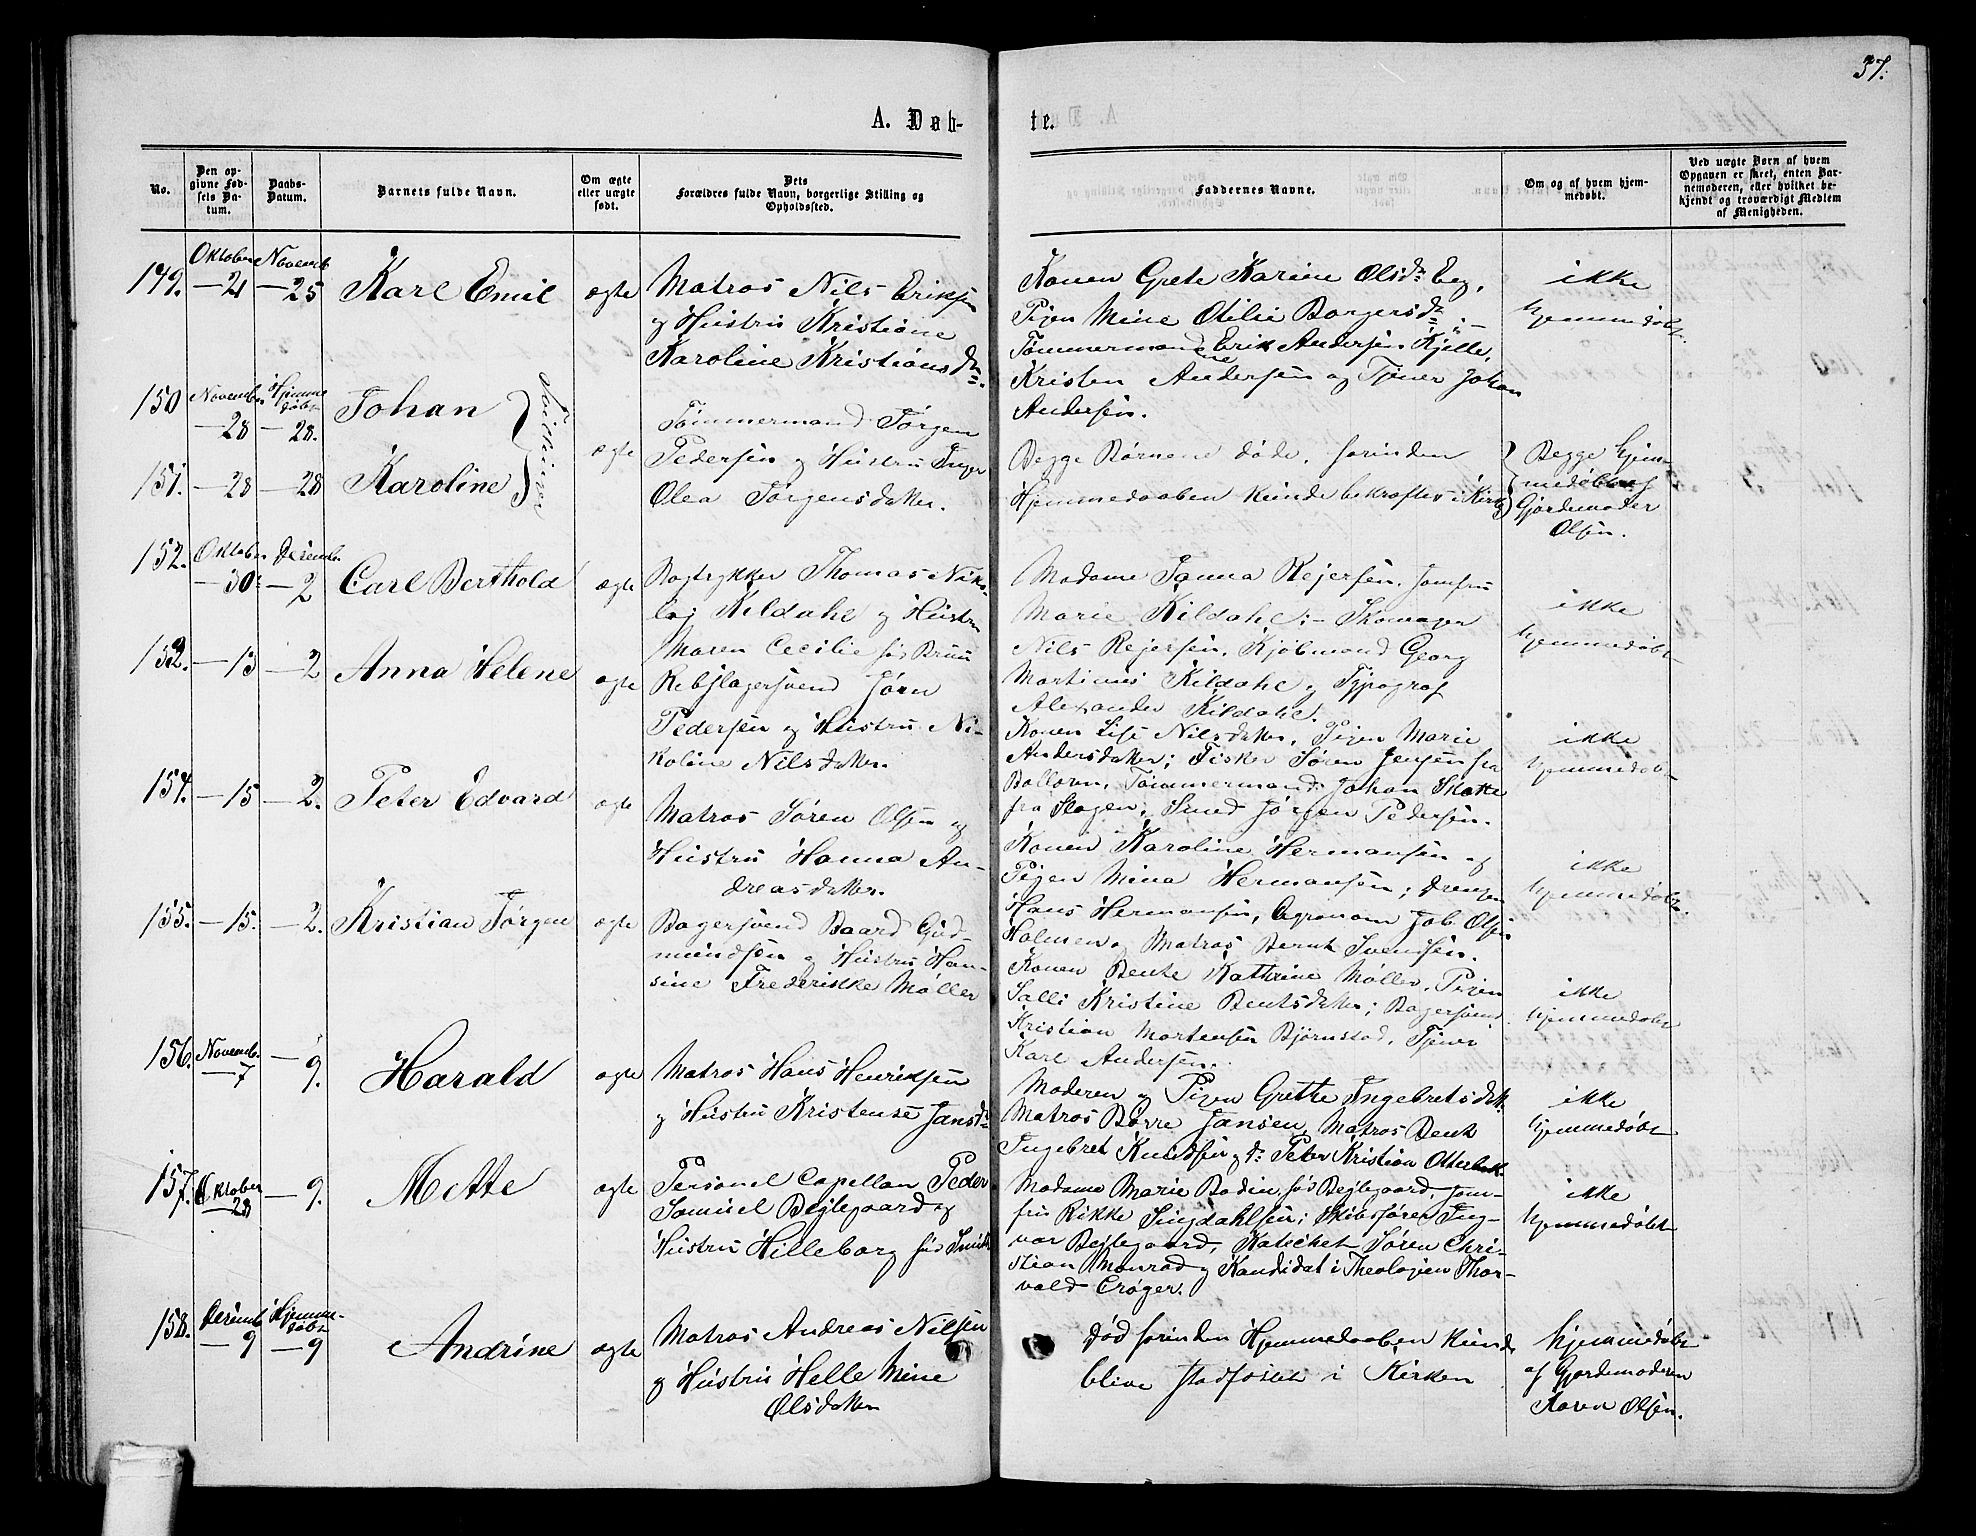 37.
A. Døb-
te.
No.
Den opgivne Fødsels Datum.
Daabs-Datum.
Barnets fulde Navn.
Om ægte eller uægte født.
Dets Forældres fulde Navn, borgerlige Stilling og Opholdssted.
Faddernes Navne.
Om og af hvem hjemmedøbt.
Ved uægte Børn af hvem Opgaven er skeet, enten Barnemoderen, eller hvilket bekjendt og troværdigt Medlem af Menigheden.
149.
Oktober
Novemb
— 25
Karl Emil
ægte
Matros Nils Eriksen
og Hustru Kristiane
Karoline Kristiansdr.
Konen Grete Karine Olsdr Eeg,
Pigen Mine Otilie Borgersdr
Tømmermand Erik Andersen Kjelle,
Kristen Andersen og Tjener Johan
Andersen.
ikke
hjemmedøbt.
150
November
— 28
Hjemme
døbt
— 28.
Johan
Tvillinger
ægte
Tømmermand Jørgen
Pedersen og Hustru Inger
Olea Jørgensdatter.
Begge Børnene døde, forinden
Hjemmedaaben kunde bekræftes i Kirk
Begge hjem-
medøbt af
Gjordemoder
Olsen.
151.
— 28
— 28
Karoline
152.
Oktober
— 30
Desemb.
— 2
Carl Berthold
ægte
Bogtrykker Thomas Niko-
laj Kildahl og Hustru
Maren Cecilie fød Bruu
Madame Janna Rejersen, Jomfru
Marie Kildahl; – Skomager
Nils Rejersen, Kjøbmand Georg
Martinus Kildahl og Typograf
Alexander Kildahl.
ikke
hjemmedøbt
153.
— 13
— 2
Anna Helene
ægte
Rebslagersvend Jørn
Pedersen og Hustru Ni-
koline Nilsdatter.
Konen Lise Nilsdatter, Pigen Marie
Andersdatter; Fisker Søren Jensen fra
Bollærn, Tømmermand Johan Skatte
fra Slagen; Smed Jørgen Pedersen.
ikke
hjemmedøbt
154.
— 15
— 2.
Peter Edvard
ægte
Matros Søren Olsen og
Hustru Hanna An-
dreasdatter.
Konen Karoline Hermansen og
Pigen Mina Hermansen; Drengen
Hans Hermansen, Agronom Job Olsen
Holmen og Matros Bernt Svendsen.
ikke
hjemmedøbt.
155.
— 15.
— 2.
Kristian Jørgen
ægte
Bagersvend Baard Gud-
mundsen og Hustru Han-
sine Frederikke Møller
Konen Bente Kathrine Møller, Pigen
Salli Kristine Bentsdatter; Bagersvend
Kristian Mortensen Bjørnstad, Tjener
Karl Andersen.
ikke
hjemmedøbt
156.
Novemb.
— 7
— 9.
Harald
ægte
Matros Hans Henriksen
og Hustru Kristense Jansdr
Moderen og Pigen Grethe Ingebretsdatt.
Matros Børre Jansen, Matros Bent
Ingebret Knudsen og do Peter Kristian Otterbek.
ikke
hjemmedøbt
157.
Oktober
28
— 9.
Mette
ægte
Personel Capellan Peder
Samuel Bejlegaard og
Hustru Hilleborg fød Smith
Madame Marie Bodin fød Bejlegaard, Jom-
fru Rikke Lingdahlsen; Skibsfører Ing-
var Bejlegaard, Kateket Søren Chri-
stian Monrad og Kandidat i Theologien Thor-
vald Crøger.
ikke
hjemmedøbt
158.
Desemb
— 9
Hjemme-
døbt
— 9
Andrine
ægte
Matros Andreas Nilsen
og Hustru Helle Mine
Olsdatter
Død forinden Hjemmedaaben kunde
blive stadfæstet i Kirken
Hjemmedøbt
af Gjordemoderen
Karen Olsen.